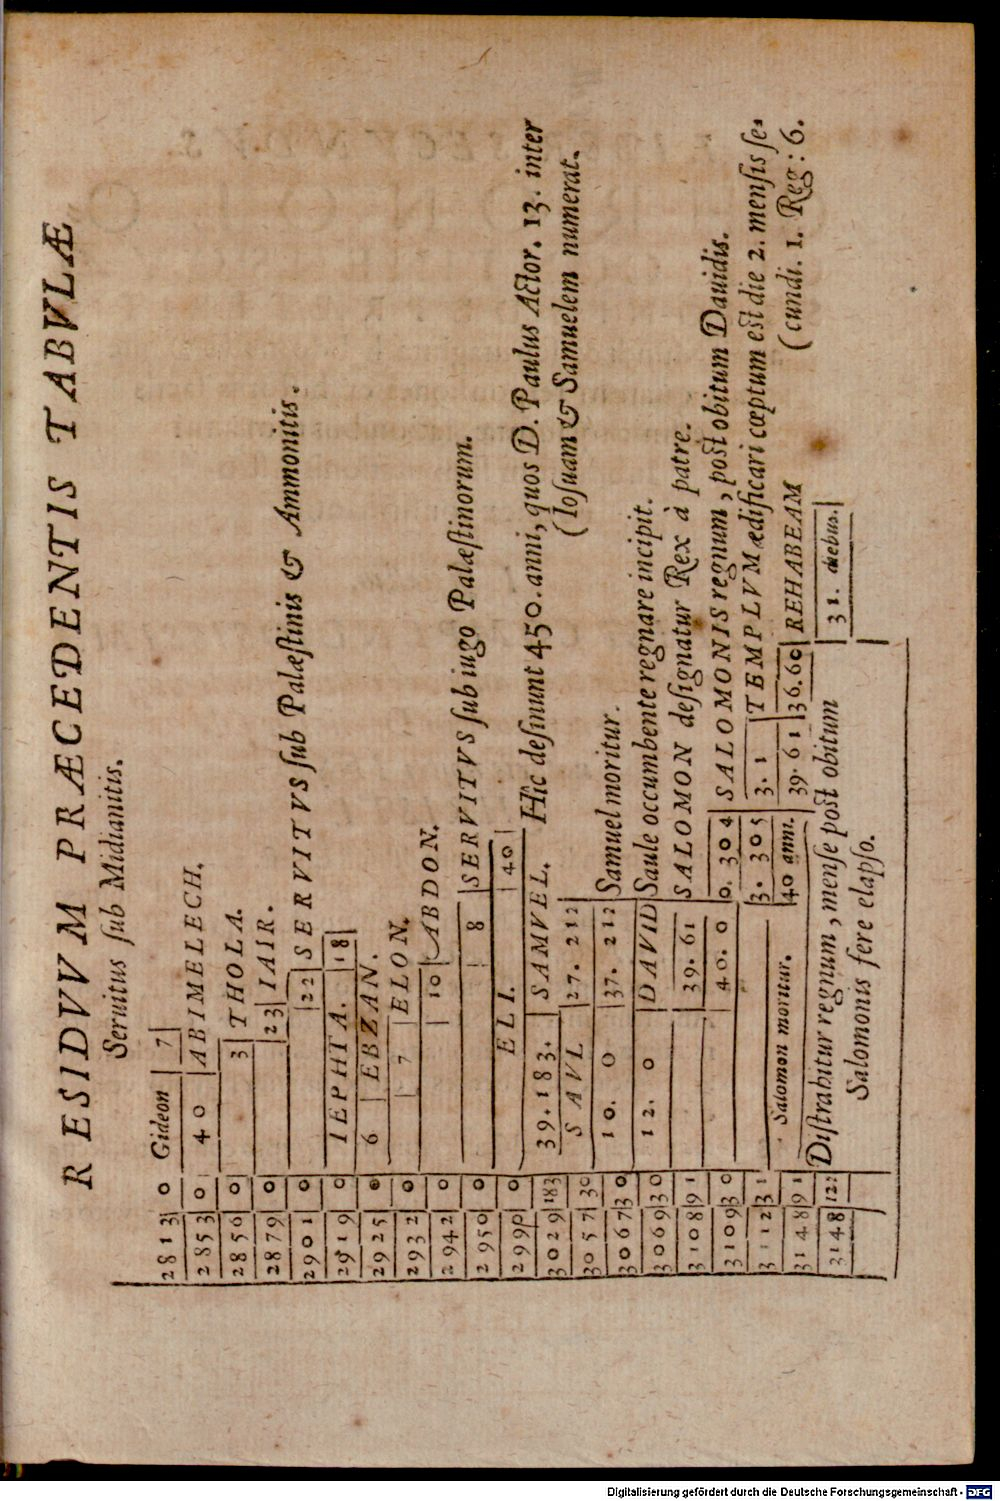 RESIDVVM PRÆCEDENTIS TABVLÆ
Seruitus sub Midianitis.
2813 0 Gideon 7
2853 0 40 ABIMELECH.
2856 0 3 THOLA.
2879 0 23 IAIR.
2901 0 22 SERVITVS sub Palæstinis & Ammonitis.
2919 0 IEPHTA. 18
2925 0 6 EBZAN.
2932 0 7 ELON.
2942 0 10 ABDON.
2950 0 8 SERVITVS sub iugo Palæstinorum.
2990 0 ELI. 40
3029 183 39.183. SAMVEL. Hic desinunt 450. anni, quos D. Paulus Actor. 13. inter
(Iosuam & Samuelem numerat.
3057 30 SAVL 27. 212
3067 30 10. 0 37. 212 Samuel moritur.
3069 30 12. 0 DAVID Saule occumbente regnare incipit.
3108 91 39. 61 SALOMON designatur Rex à patre.
3109 30 40. 0 0. 304 SALOMONIS regnum, post obitum Dauidis.
3112 31 3. 305 3. 1 TEMPLVM ædificari cœptum est die 2. mensis se-
(cundi. 1. Reg: 6.
3148 91 Salomon moritur. 40 anni. 39. 61 36. 60 REHABEAM
3148 122 Distrahitur regnum, mense post obitum 31. diebus.
Salomonis fere elapso.
Digitalisierung gefördert durch die Deutsche Forschungsgemeinschaft - DFG